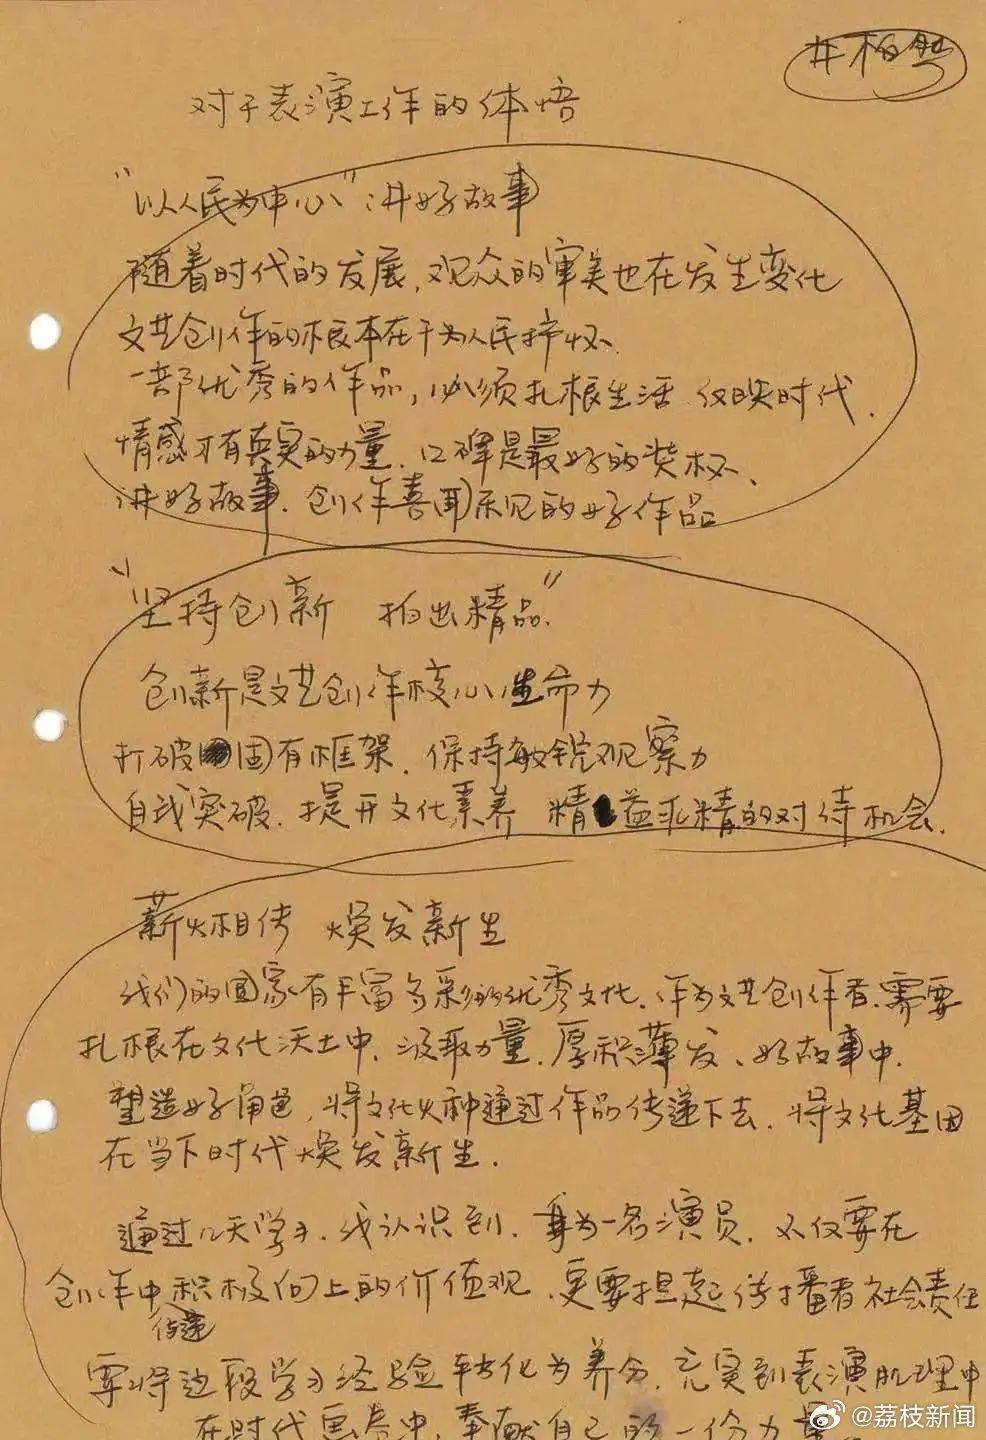 井柏然
对于表演工作的体悟
"以人民为中心"讲好故事
随着时代的发展,观众的审美也在发生变化
文艺创作的根本在于为人民抒怀、
一部优秀的作品,必须扎根生活 反映时代.
情感才有真实的力量.口碑是最好的奖杯、
讲好故事.创作喜闻乐见的好作品
"坚持创新 拍出精品"
创新是文艺创作核心生命力
打破固有框架.保持敏锐观察力
自我突破.提升文化素养 精益求精的对待机会.
薪火相传 焕发新生
我们的国家有丰富多彩的优秀文化、作为文艺创作者.需要
扎根在文化沃土中.汲取力量.厚积薄发、好故事中.
塑造好角色,将文化火种通过作品传递下去.将文化基因
在当下时代焕发新生.
通过几天学习.我认识到.身为一名演员.不仅要在
创作中传递积极向上的价值观.更要担起传播者社会责任
要将这段学习经验转化为养分.充实到表演肌理中
在时代画卷中,奉献自己的一份力量。
@荔枝新闻